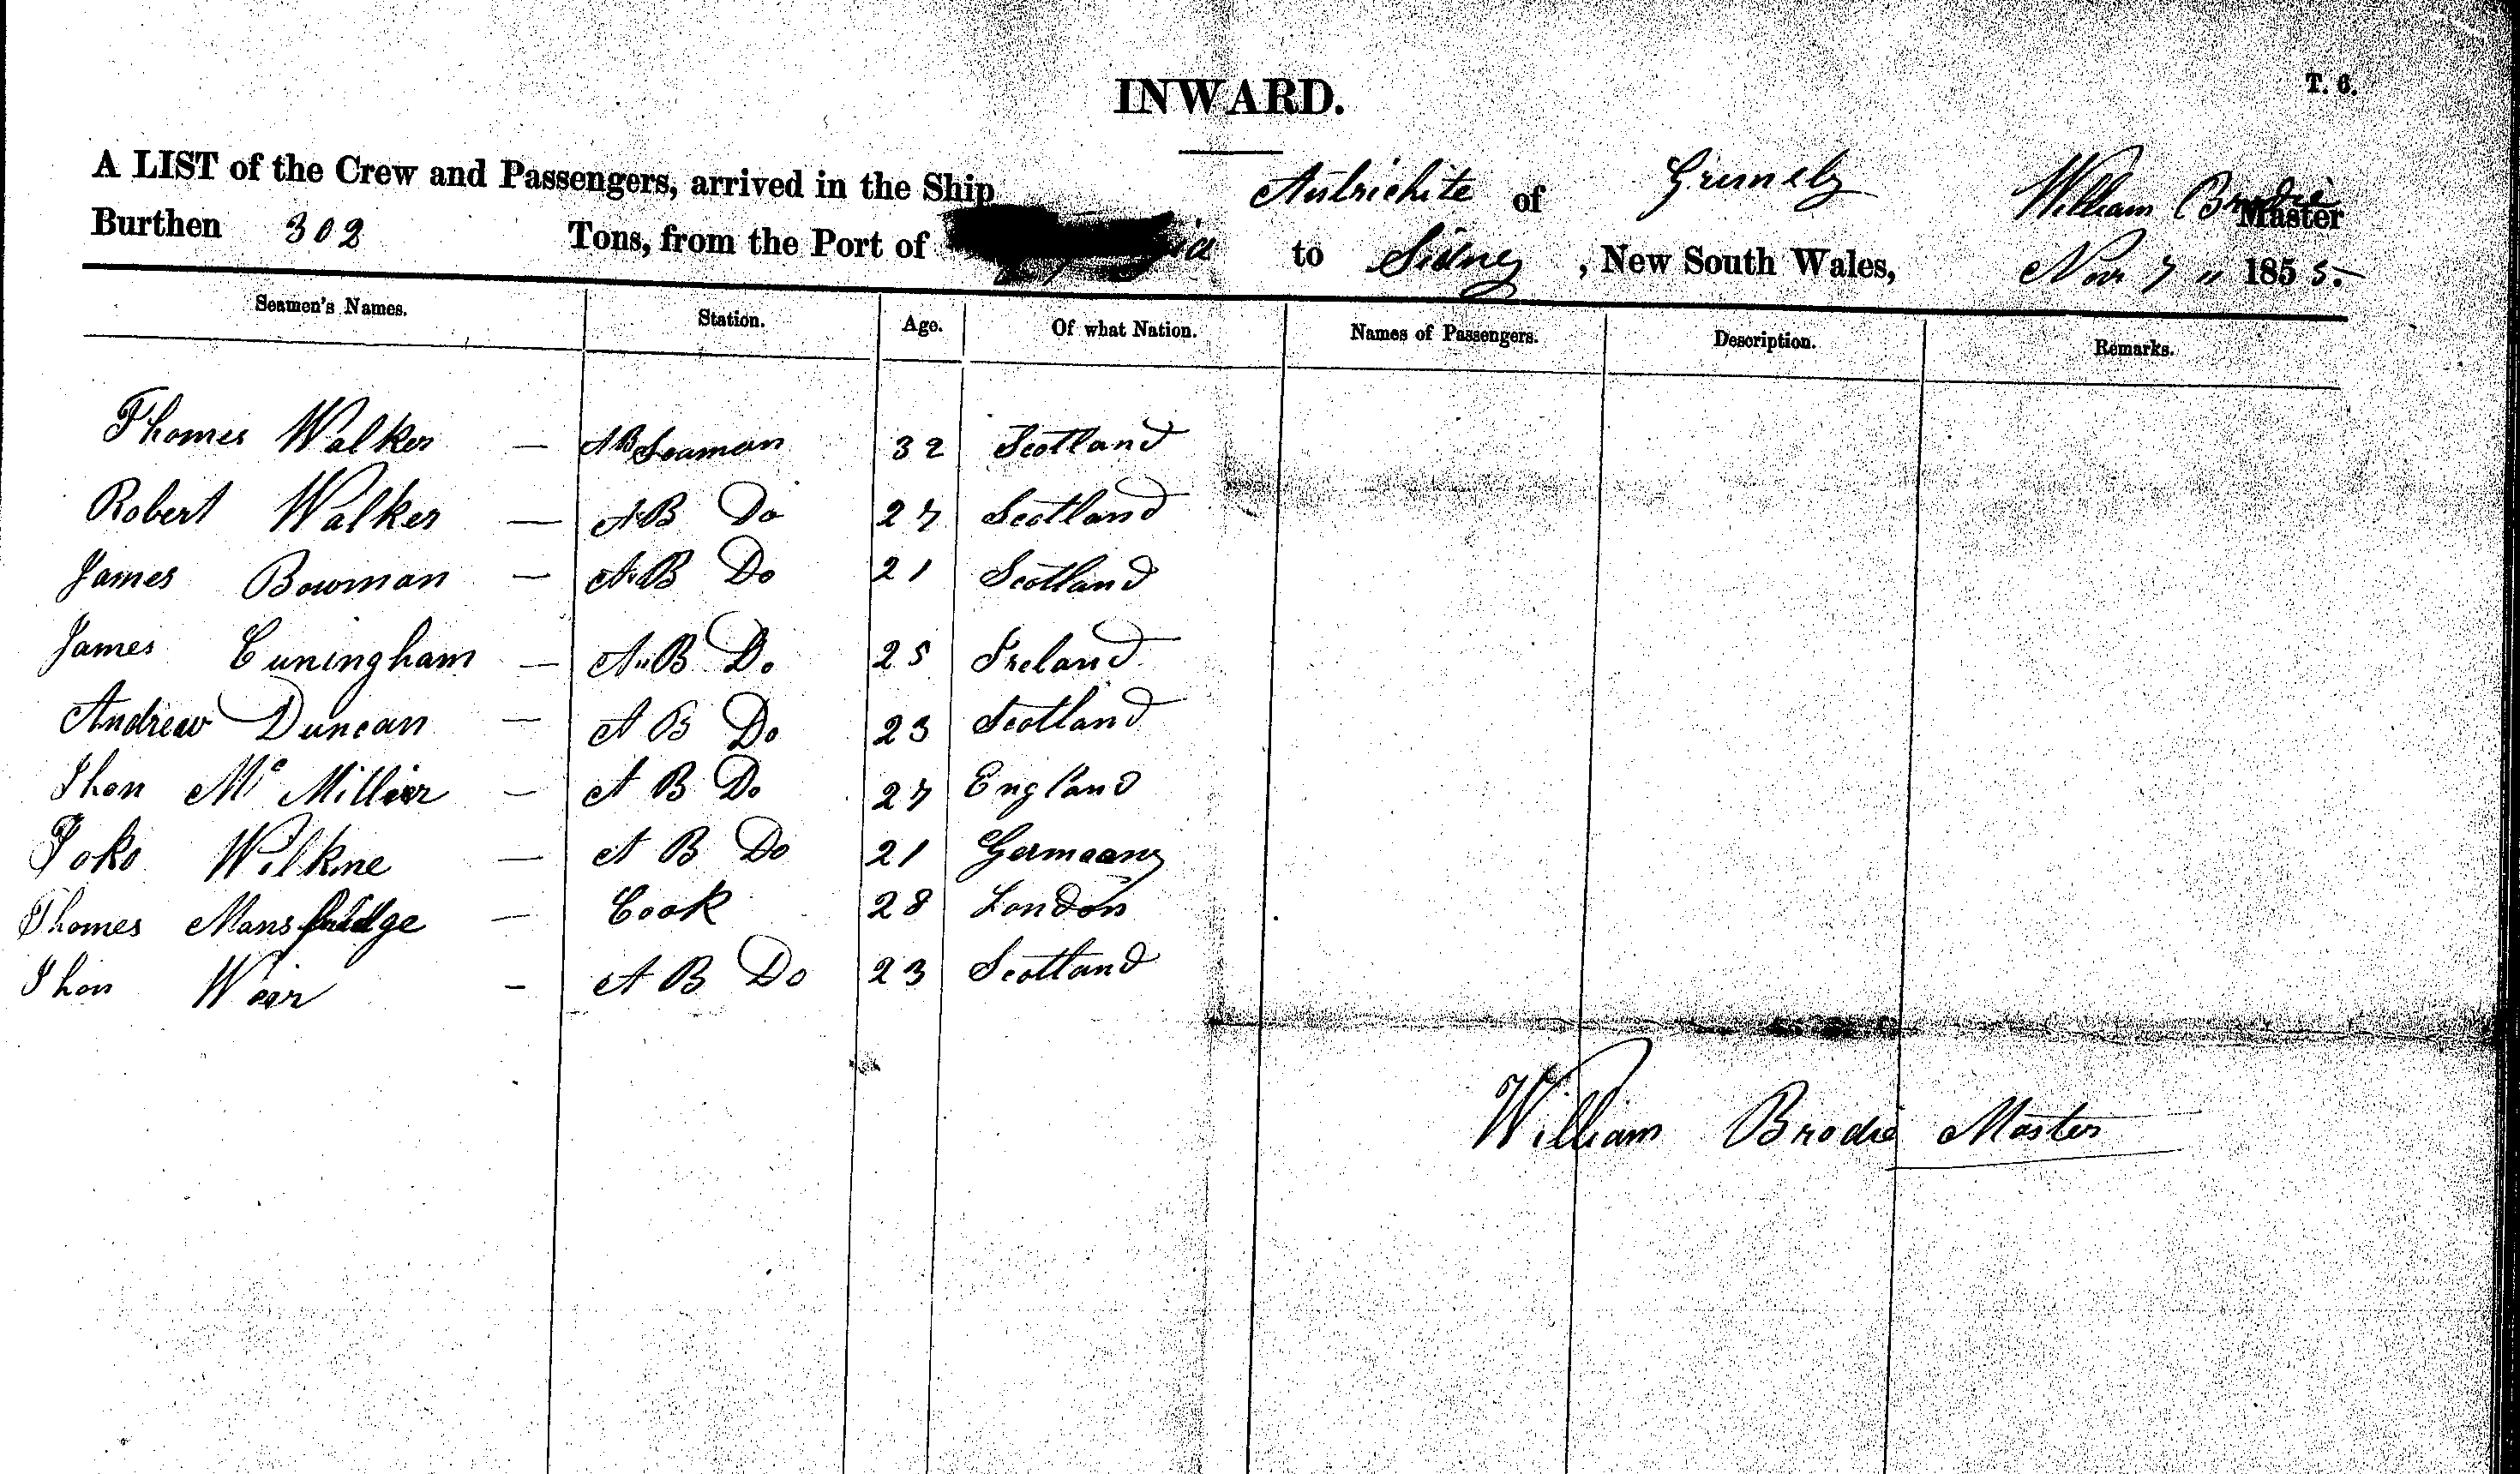 INWARD.
T. 6.
A LIST of the Crew and Passengers, arrived in the Ship of William Brodie Master
Burthen 302 Tons, from the Port of to Sidney, New South Wales, Nov 7 " 1855.
Seamen's Names. Station. Age. Of what Nation. Names of Passengers. Description. Remarks.
Thomes Walker — AB Seaman 32 Scotland
Robert Walker — AB Do 27 Scotland
James Bowman — A"B Do 21 Scotland
James Cuningham — A"B Do 25 Ireland
Andrew Duncan — A B Do 23 Scotland
Jhon Mc — A B Do 27 England
— A B Do 21 Germaany
Thomes — Cook 28 London
Jhon Weir - A B Do 23 Scotland
William Brodie Master